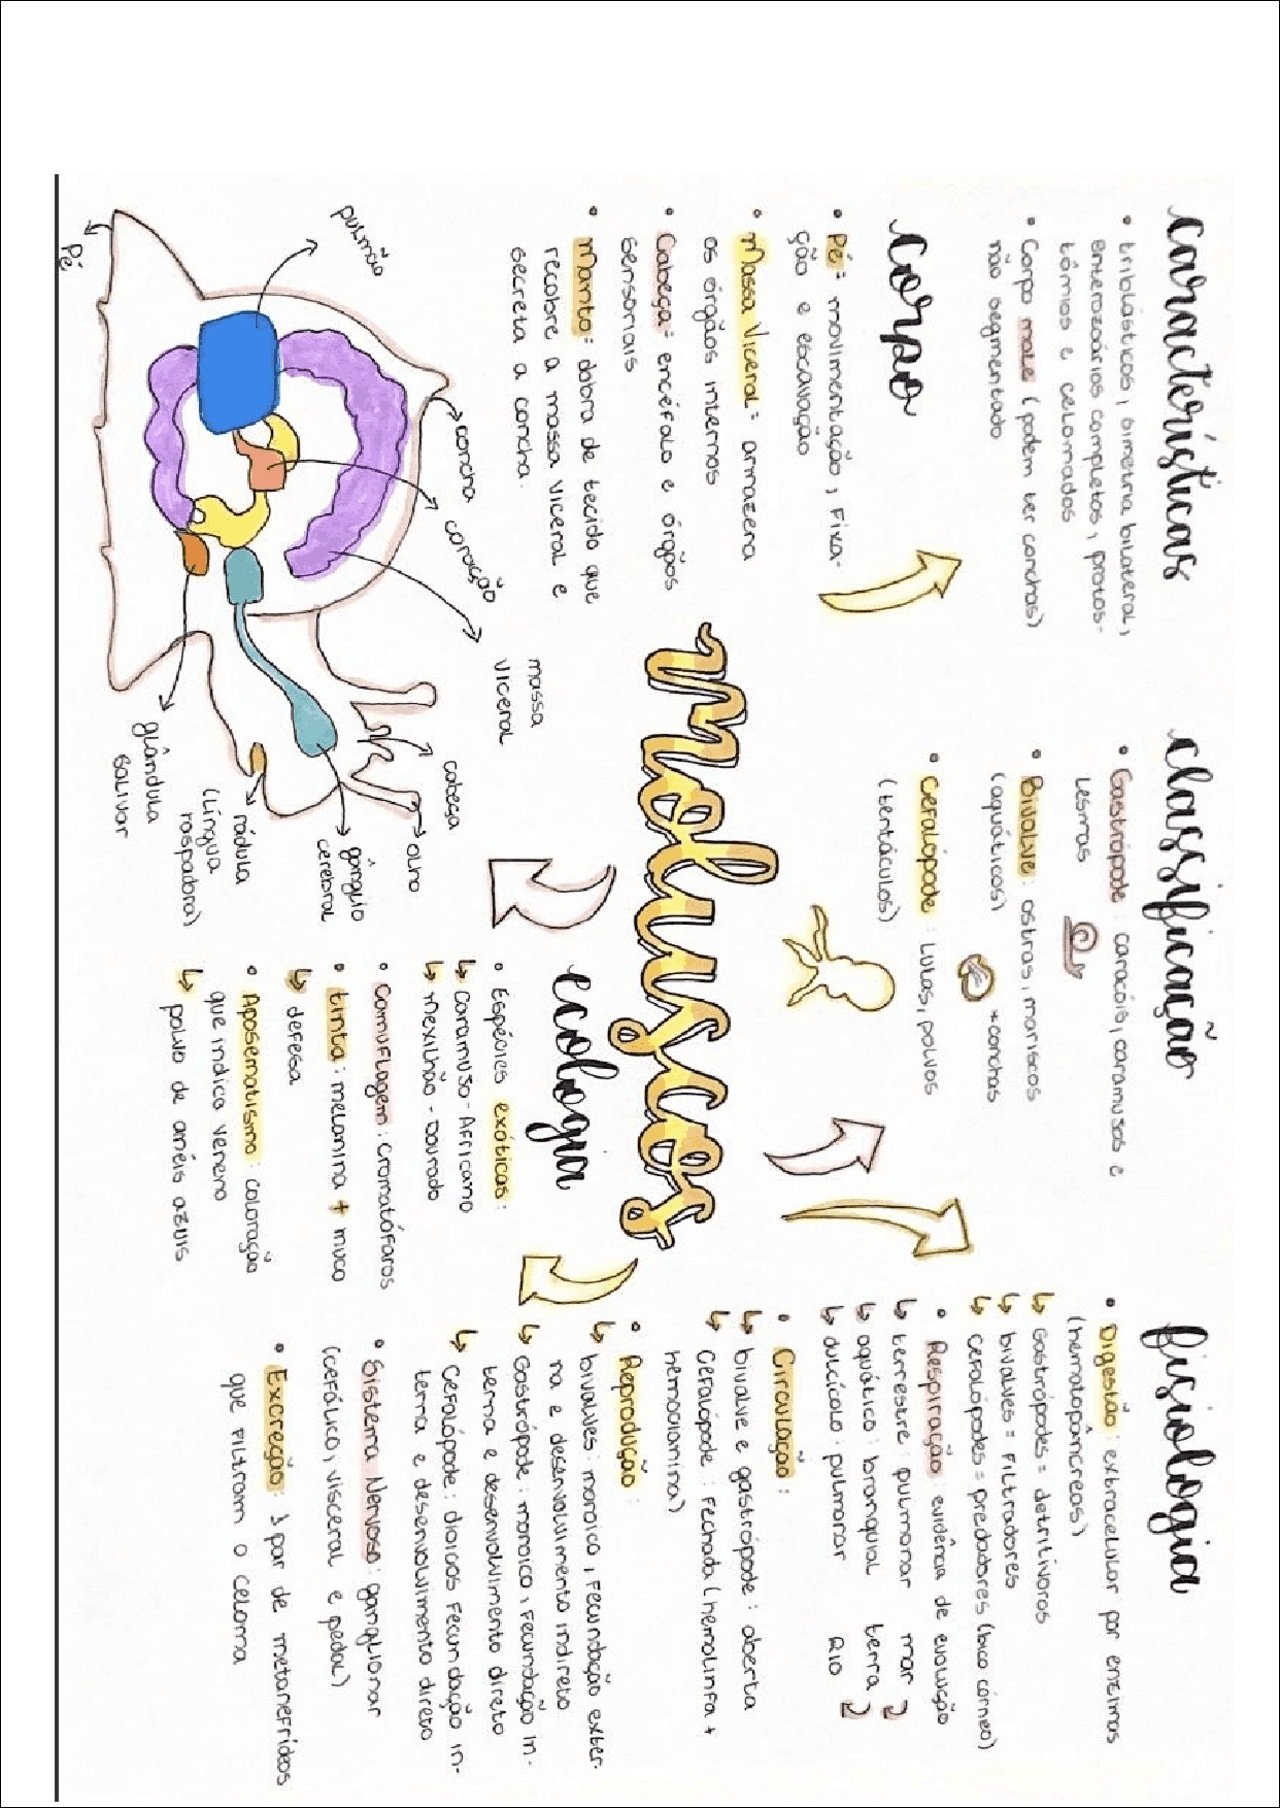 características
• triblásticos, simetria bilateral,
enterozoários completos, protos-
tômios e celomados
• Corpo mole (podem ter conchas)
não segmentado
corpo
• Pé: movimentação, fixa-
ção e escavação
• Massa Viceral: armazena
os órgãos internos
• Cabeça: encéfalo e órgãos
sensoriais
• Manto: dobra de tecido que
recobre a massa viceral e
secreta a concha.
pulmão
Pé
concha
coração
massa
viceral
cabeça
olho
gânglio
cerebral
rádula
(Língua
raspadora)
glândula
salivar
moluscos
classificação
• Gastrópode: caracóis, caramusos e
Lesmas
• Bivalve: ostras, mariscos
(aquáticos) + conchas
• Cefalópode: Lulas, polvos
(tentáculos)
ecologia
• Espécies exóticas:
↳ Caramuso-Africano
↳ Mexilhão-Dourado
• Camuflagem: Cromatófaros
• tinta: melanina + muco
↳ defesa
• Aposematismo: coloração
que indica veneno
↳ polvo de anéis azuis
fisiologia
• Digestão: extracelular por enzimas
(hematopâncreos)
↳ Gastrópodes= detritívoros
↳ bivalves = Filtradores
↳ cefalópodes= predadores (bico córneo)
• Respiração: evidência de evolução
↳ terrestre: pulmonar mar
↳ aquático: branquial terra
↳ dulcícolo: pulmonar RIO
• Circulação:
↳ bivalve e gastrópode: aberta
↳ Cefalópode: Fechada (hemolinfa +
hemocianina)
• Reprodução:
↳ bivalves: monoico, Fecundação exter-
na e desenvolvimento indireto
↳ Gastrópode: monoico, Fecundação in-
terna e desenvolvimento direto
↳ Cefalópode: dioicos Fecundação in-
terna e desenvolvimento direto
• Sistema Nervoso: ganglionar
(cefálico, visceral e pedal)
• Excreção: 1 par de metanefrídeos
que Filtram o celoma